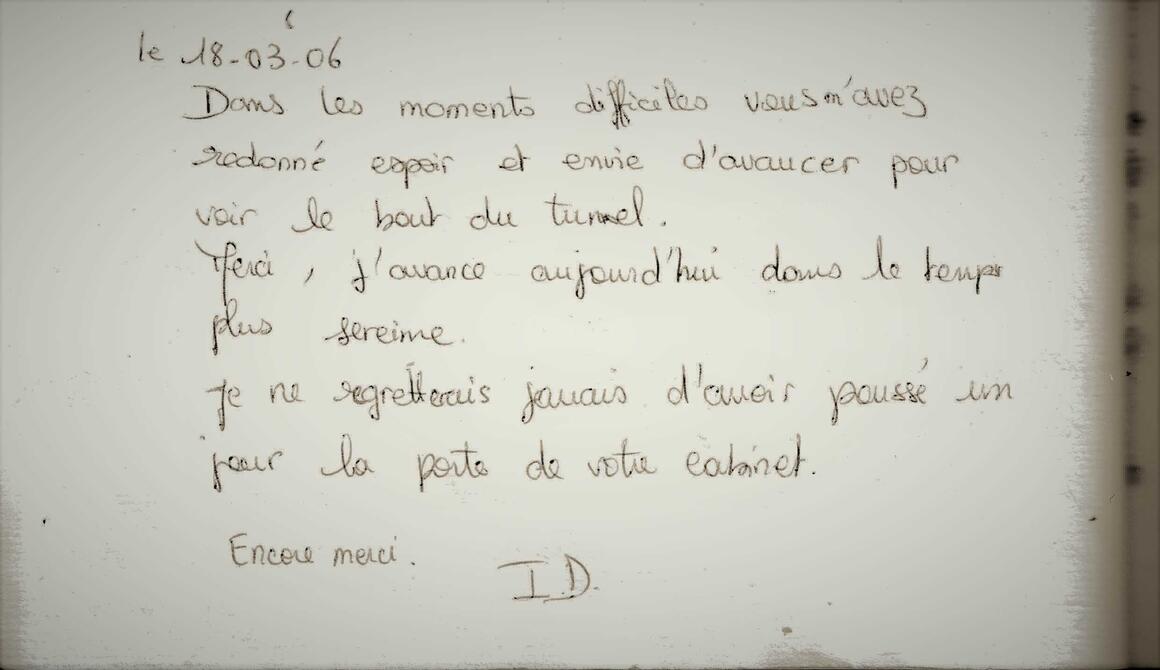 le 18-03-06
Dans les moments difficiles vous m'avez
redonné espoir et envie d'avancer pour
voir le bout du tunnel.
Merci, j'avance aujourd'hui dans le temps
plus sereine.
Je ne regretterais jamais d'avoir poussé un
jour la porte de votre cabinet.
Encore merci.
I.D.